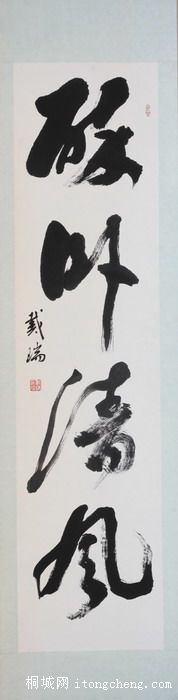 醉卧清风
戴瑞
桐城网 itongcheng.com